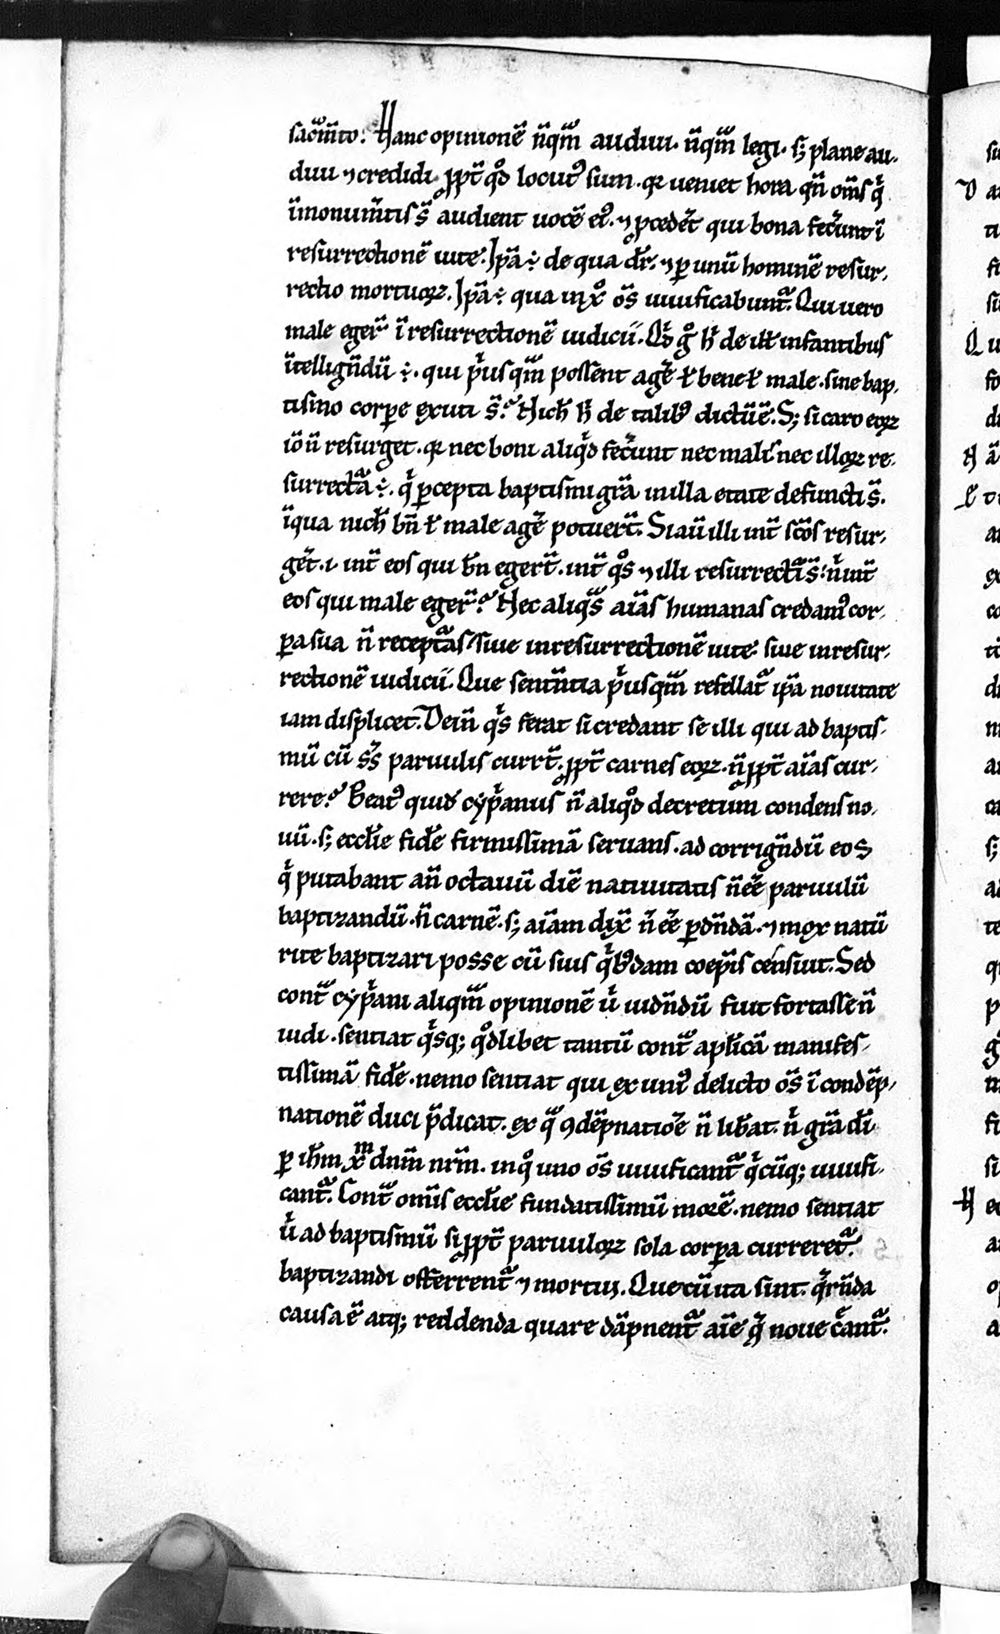 sac̄m̄to. Hanc opinionē n̄qm̄ audiui. n̄qm̄ legi. s; plane au-
diui ⁊ credidi ꝓpt̄ qd̊ locut᷒ sum. qꝛ ueniet hora qn̄ om̄s qͥ
ī monum̄tis s̄ audient uocē ei᷒. ⁊ ꝓcedēt qui bona fec̄unt ī
resurrectionē uite. Ip̄a ÷ de qua dr̄. ⁊ ꝑ unū hominē resur-
rectio mortuoꝝ. Ip̄a ÷ qua in xp̊ om̄s uiuificabunt᷑. Qui uero
male eger̄ ī resurrectionē iudicii. Qd̄ gͦ h̄ de ill̄ infantibus
ītellign̄dū ÷. qui pͥusqm̄ possent agē ł bene ł male. sine bap-
tismo corpe exuti s̄? Nich̄ h̄ de talib᷒ dictū ē. S; si caro eoꝝ
iō n̄ resurget. qꝛ nec boni aliqͥd fec̄unt nec mali. nec illoꝝ re-
surrect̄a ÷. qͥ ꝑcepta baptismi gr̄a in illa etate defuncti s̄.
ī qua nich̄ bn̄ ł male agē potuer̄t. Si au̅ illi int̄ sc̄os resur-
gēt. i. int̄ eos qui bn̄ egert̄. int̄ qͦs ⁊ illi resurrect̄i s̄. nͥ int̄
eos qui male eger̄? Nec aliqͣs aīas humanas credam᷒ cor-
pa sua n̄ recept̄as. siue in resurrectionē uite. siue in resur-
rectionē iudicii. Que sentn̄tia pͥusqm̄ refellat᷑ ip̄a nouitate
iam displicet. Dein̄ qͥs ferat si credant se illi qui ad baptis-
mū cū sͥs paruulis curr̄t. ꝓpt̄ carnes eoꝝ. n̄ ꝓpt̄ aīas cur-
rere? Beat᷒ quid̄ cypͥanus n̄ aliqͦd decretum condens no-
uū. s; eccl̄ie fidē firmissimā seruans. ad corrign̄dū eos
qͥ putabant an̄ octauū diē natiuitatis n̄ ēē paruulū
baptizandū. n̄ carnē. s; aīam dix̄ n̄ ēē ꝑdn̄dā. ⁊ mox natū
rite baptizari posse cū suis qͥb᷒dam coep̄is censuit. Sed
cont̄ cypͥani aliqm̄ opinionē uͥ uidn̄dū fuit fortasse n̄
uidi. sentiat qͥsq; qͦdlibet tantū cont̄ apl̄icā manifes-
tissimā fidē. nemo sentiat qui ex uni᷒ delicto om̄s ī condēp-
nationē duci p̄dicat. ex qͣ ꝯdēpnatiōe n̄ lib̄at. nͥ gr̄a dī
ꝑ ih̄m xp̄m dn̄m nr̄m. in qͦ uno om̄s uiuificant᷑ qͥcūq; uiuifi-
cant᷑. Cont̄ om̄is eccl̄ie fundatissimū morē. nemo sentiat
uͥ ad baptismū si ꝓpt̄ paruuloꝝ sola corpa curreret᷑.
baptizandi offerrent᷑ ⁊ mortui. Que cū ita sint. qͥrn̄da
causa ē atq; reddenda quare dāpnent᷑ aīe qͥ noue cͥant᷑.